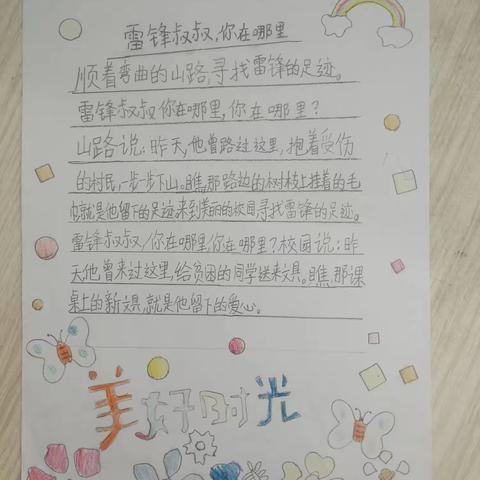 雷锋叔叔,你在哪里
顺着弯曲的山路,寻找雷锋的足迹。
雷锋叔叔你在哪里,你在哪里?
山路说:昨天,他曾路过这里,抱着受伤
的村民,一步一步下山。瞧,那路边的树枝上挂着的毛
巾,就是他留下的足迹.来到美丽的校园寻找雷锋的足迹。
雷锋叔叔/你在哪里/你在哪里?校园说:昨
天他曾来过这里,给贫困的同学送来文具。瞧,那课
桌上的新文具,就是他留下的爱心。
美好时光